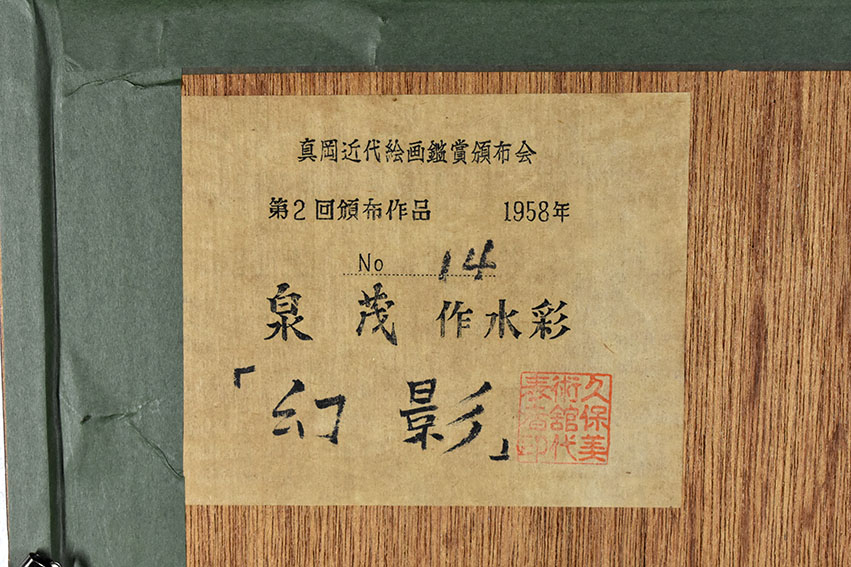 真岡近代絵画鑑賞頒布会
第2回頒布作品 1958年
No 14
泉茂 作水彩
「幻影」
久保美
術館代
表者印